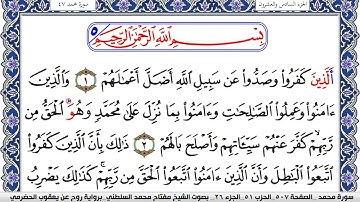 الجزء السادس والعشرون
سورة محمد ٤٧
بِسْمِ ٱللَّهِ ٱلرَّحْمَٰنِ ٱلرَّحِيمِ
ٱلَّذِينَ كَفَرُوا۟ وَصَدُّوا۟ عَن سَبِيلِ ٱللَّهِ أَضَلَّ أَعْمَٰلَهُمْ ١ وَٱلَّذِينَ
ءَامَنُوا۟ وَعَمِلُوا۟ ٱلصَّٰلِحَٰتِ وَءَامَنُوا۟ بِمَا نُزِّلَ عَلَىٰ مُحَمَّدٍ وَهُوَ ٱلْحَقُّ مِن
رَّبِّهِمْ كَفَّرَ عَنْهُمْ سَيِّـَٔاتِهِمْ وَأَصْلَحَ بَالَهُمْ ٢ ذَٰلِكَ بِأَنَّ ٱلَّذِينَ كَفَرُوا۟
ٱتَّبَعُوا۟ ٱلْبَٰطِلَ وَأَنَّ ٱلَّذِينَ ءَامَنُوا۟ ٱتَّبَعُوا۟ ٱلْحَقَّ مِن رَّبِّهِمْ كَذَٰلِكَ يَضْرِبُ
سورة محمد . الصفحة ٥٠٧ الحزب ٥١ الجزء ٢٦ . بصوت الشيخ مفتاح محمد السلطني برواية روح عن يعقوب الحضرمي